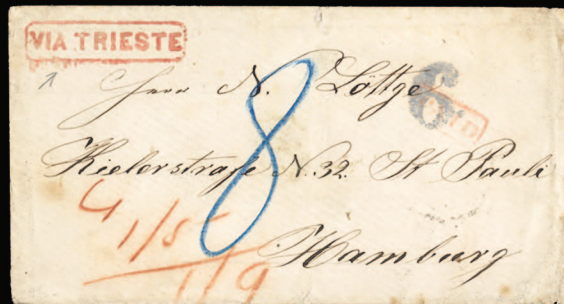 VIA TRIESTE
Herr N. Löttge
6
8
Kielerstraße N. 32. St Pauli
Hamburg
1/5
1/9